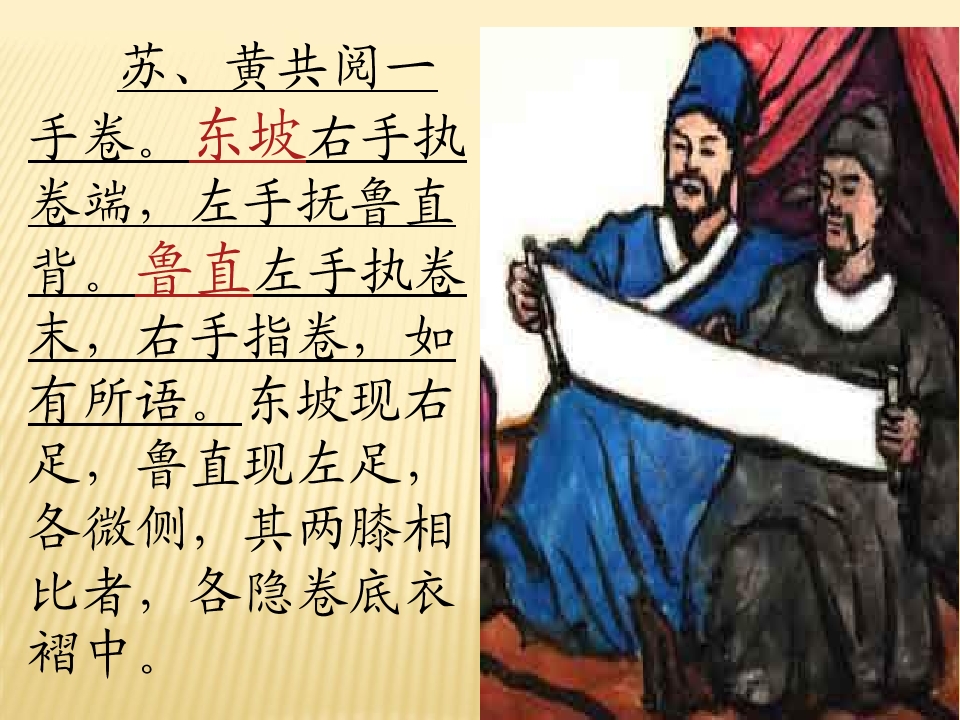 苏、黄共阅一
手卷。东坡右手执
卷端，左手抚鲁直
背。鲁直左手执卷
末，右手指卷，如
有所语。东坡现右
足，鲁直现左足，
各微侧，其两膝相
比者，各隐卷底衣
褶中。